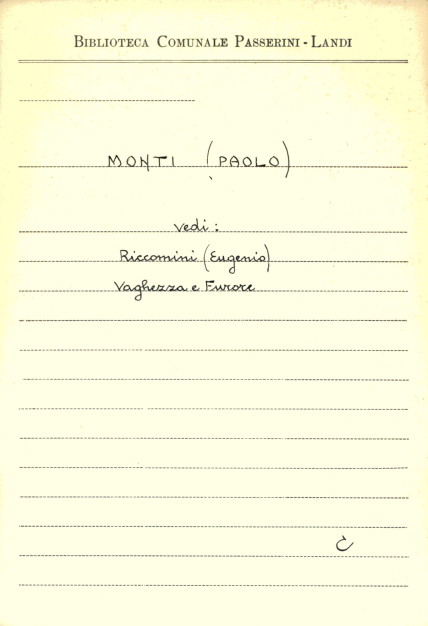 BIBLIOTECA COMUNALE PASSERINI - LANDI
MONTI (PAOLO)
vedi:
Riccomini (Eugenio)
Vaghezza e Furore